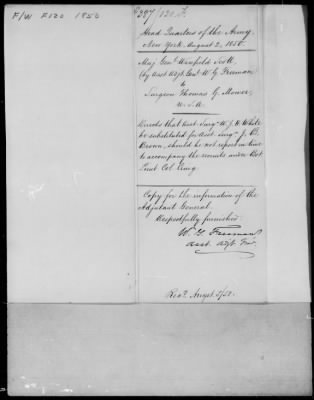 F/W F120 1850
397/120. F.
Head Quarters of the Army,
New York, August 2, 1850.
Maj. Genl. Winfield Scott
(by Asst. Adjt. Genl. W. G. Freeman)
to
Surgeon Thomas G. Mower,
U.S.A.
Directs that Asst. Surgn. W. J. H. White
be substituted for Asst. Surgn. J. B.
Brown, should he not report in time
to accompany the recruits under Bvt.
Lieut. Col.
Copy for the information of the
Adjutant General,
Respectfully furnished.
W. G. Freeman
Asst. Adjt. Genl.
Recd. August 3/50.